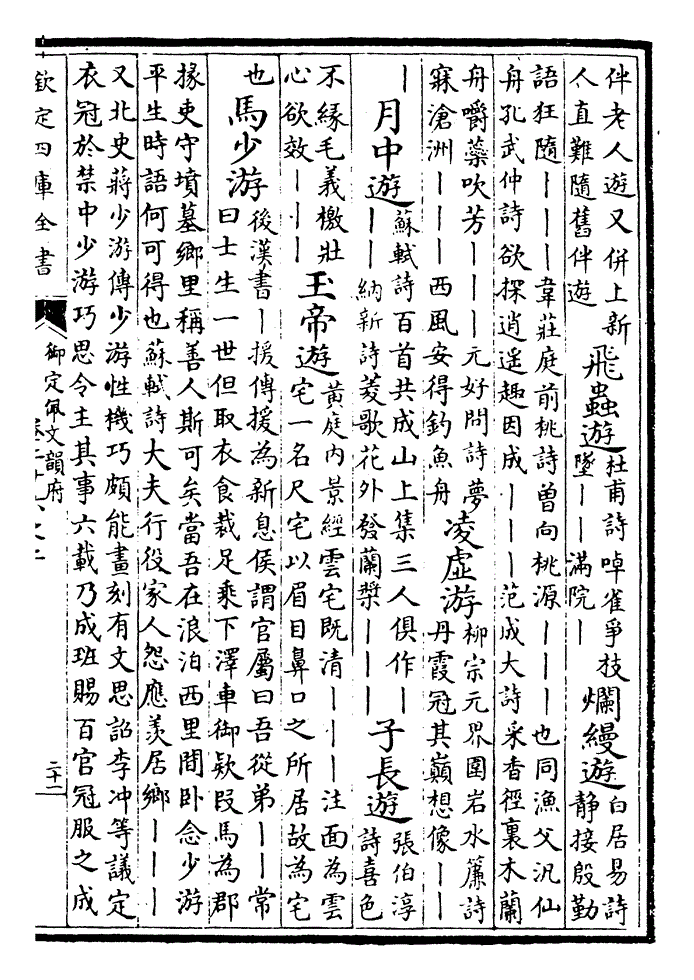 伴老人遊又併上新
人直難隨舊伴遊
飛蟲遊
杜甫詩啅雀爭枝
墜丨丨滿院丨
爛縵遊
白居易詩
靜接殷勤
語狂隨丨丨丨韋莊庭前桃詩曾向桃源丨丨丨也同漁父汎仙
舟孔武仲詩欲探逍遥趣因成丨丨丨范成大詩采香徑裏木蘭
舟嚼蘂吹芳丨丨丨元好問詩夢
寐滄洲丨丨丨丨西風安得釣魚舟
凌虛游
柳宗元界圍岩水簾詩
丹霞冠其巔想像丨丨
丨
月中遊
蘇軾詩百首共成山上集三人俱作丨
丨丨納新詩菱歌花外發蘭槳丨丨丨
子長遊
張伯淳
詩喜色
不緣毛義檄壯
心欲效丨丨丨
玉帝遊
黃庭内景經雲宅既清丨丨丨注面為雲
宅一名尺宅以眉目鼻口之所居故為宅
也
馬少游
後漢書丨援傳援為新息侯謂官屬曰吾從弟丨丨常
曰士生一世但取衣食裁足乘下澤車御欵段馬為郡
掾吏守墳墓鄉里稱善人斯可矣當吾在浪泊西里間卧念少游
平生時語何可得也蘇軾詩大夫行役家人怨應羨居鄉丨丨丨
又北史蔣少游傳少游性機巧頗能畫刻有文思詔李冲等議定
衣冠於禁中少游巧思令主其事六載乃成班賜百官冠服之成
欽定四庫全書
御定佩文韻府
二十一